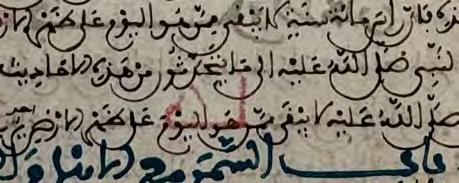 هذه فان راس مائة سنة لا يبقى ممن هو اليوم على ظهر الار
لنبي صلى الله عليه الى ما يتحدثون من هذه الاحاديث
صلى الله عليه لا يبقى ممن هو اليوم على ظهر الارض
باب السمر مع الاهل و